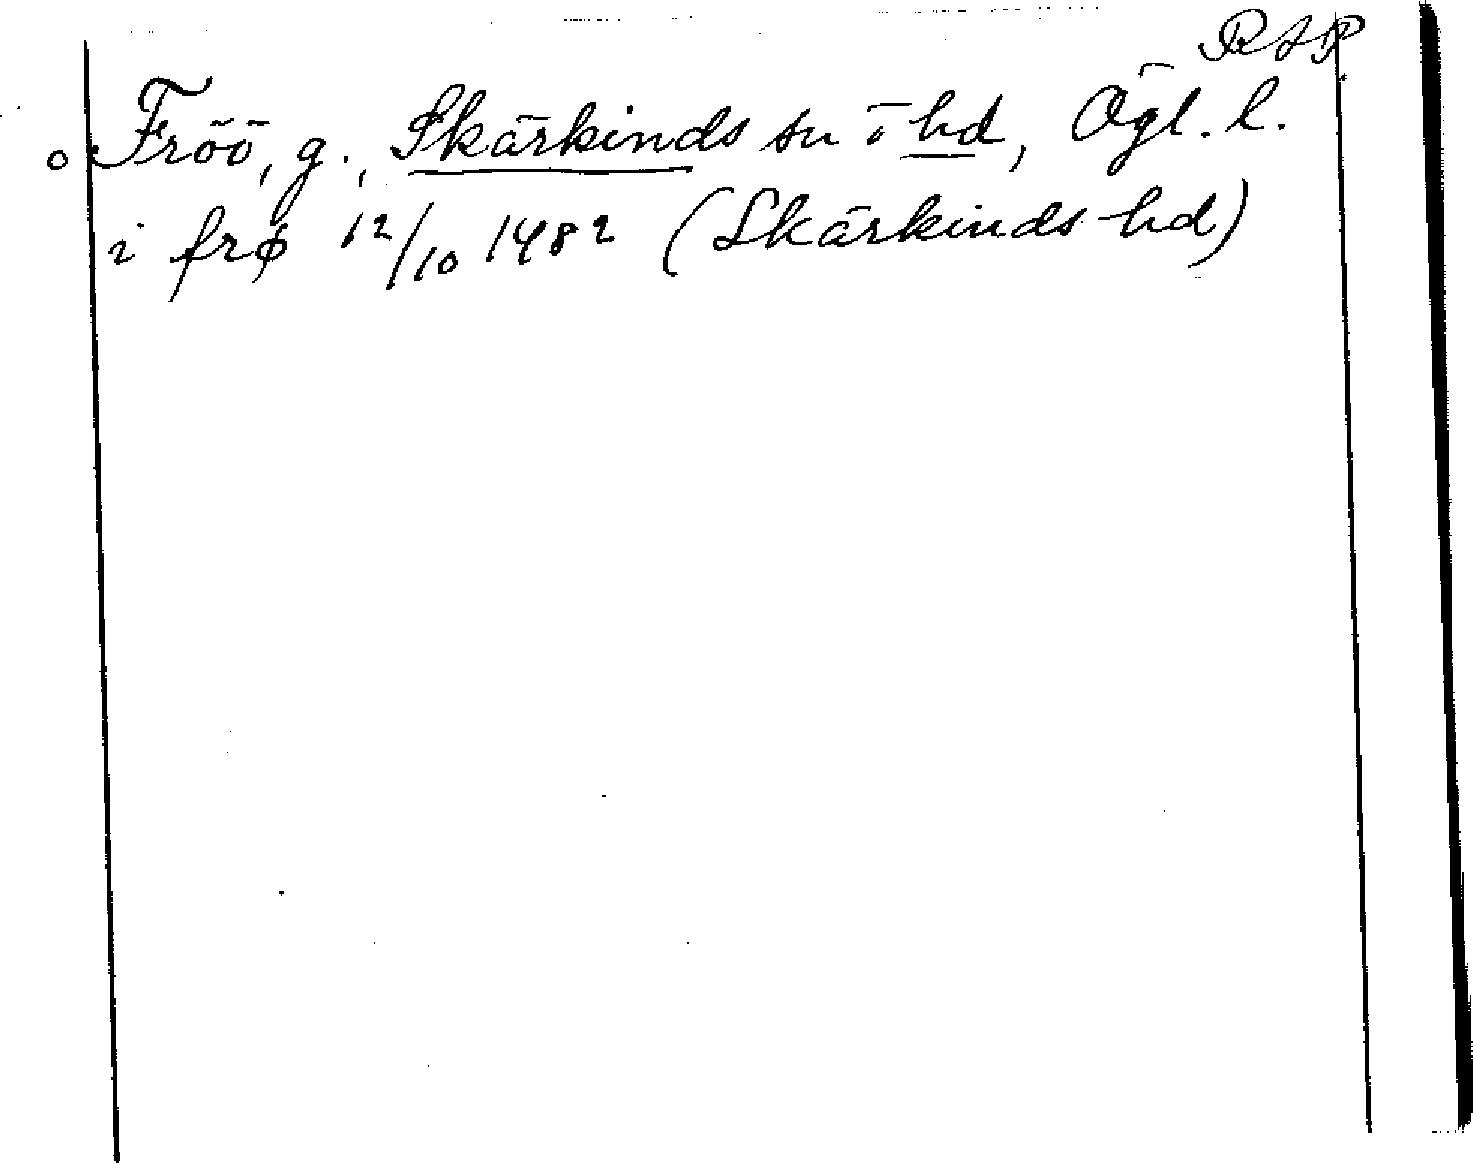 RAP.
Fröö, g., Skärkinds sn o hd, Ögl. l.
i frø 12/10 1482 (Skärkinds hd)